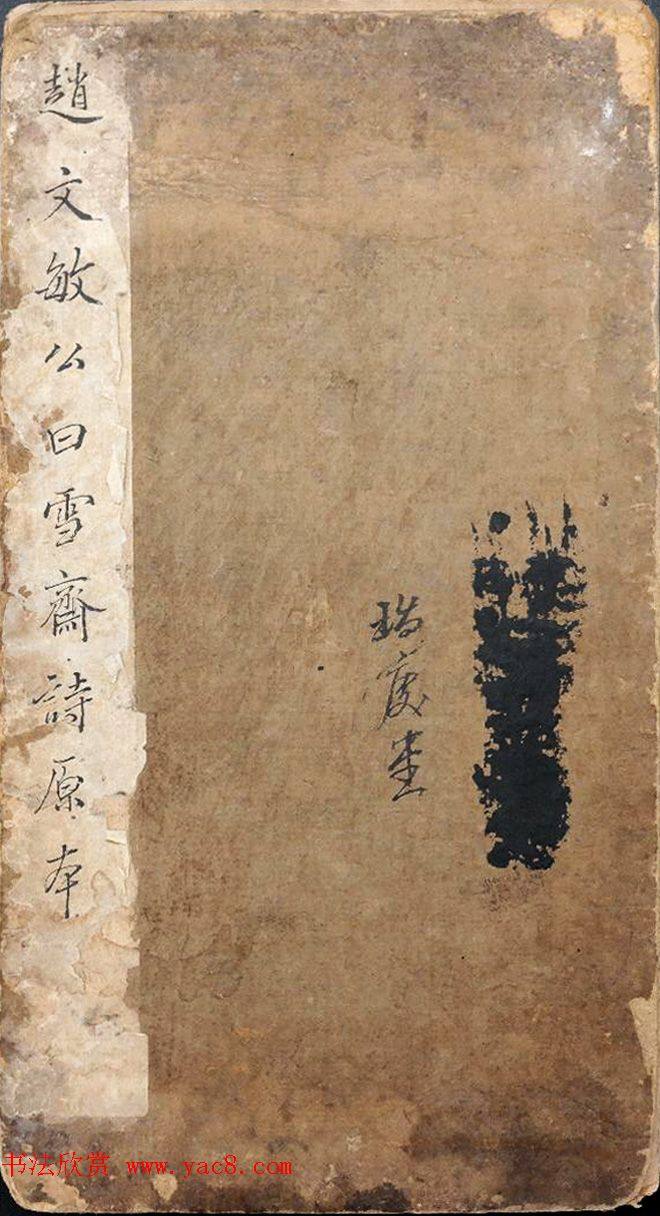 趙文敏公曰雪齋詩原本
瑞
书法欣赏 www.yac8.com